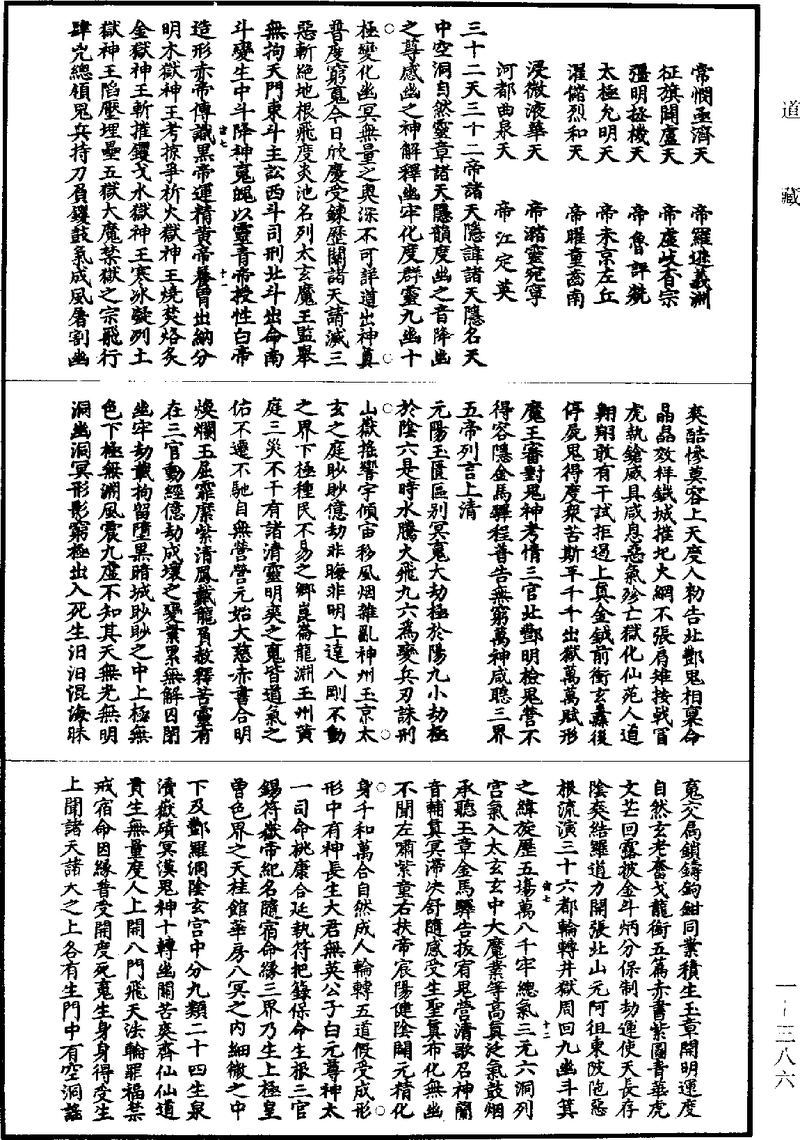 道藏
常憫丞濟天　帝羅遼義洲
征旗開盧天　帝虛岐首宗
彊明拯機天　帝魯評兢
太極允明天　帝未京左丘
濯儲烈和天　帝曜童齒南
浸微液華天　帝潞靈宛寧
河都曲泉天　帝江定英
三十二天三十二帝諸天隱諱諸天隱名天
中空洞自然靈章諸天隱韻度幽之音降幽
之尊感幽之神解釋幽牢化度群靈九幽十
極變化幽冥無量之奧深不可詳道出神真
普度窮冤今日欣慶受鍊歷關諸天請滅三
惡斬絕地根飛度炎池名列太玄魔王監舉
無拘天門東斗主訟西斗司刑北斗出命南
斗變生中斗降神冤魄以靈青帝授性白帝
造形赤帝傳識黑帝運精黃帝養胃出納分
明木獄神王考掠爭析火獄神王燒焚烙炙
金獄神王斬摧钁戈水獄神王寒冰凝列土
獄神王陷壓埋壘五獄大魔禁獄之宗飛行
肆兇總領鬼兵持刀負鑊鼓氣成風屠割幽
爽酷慘莫容上天度人勑告北酆鬼相稟命
晶晶效祥鐵城摧圮火網不張肩雄按戟冒
虎執鎗威具咸息惡氣殄亡獄化仙苑人道
翱翔敢有干試拒遏上真金鉞前衝玄纛後
停屍鬼得度衆苦斯平千千出獄萬萬賦形
魔王審對鬼神考情三官北酆明檢鬼營不
得容隱金馬驛程普告無窮萬神咸聽三界
五帝列言上清
元陽玉匱區別冥冤大劫極於陽九小劫極
於陰六是時水騰火飛九六為變兵刃誅刑
山嶽搖響宇傾宙移風烟雜亂神州玉京太
玄之庭眇眇億劫非晦非明上達八剛不動
之界下極種民不易之鄉崑崙龍淵玉州黃
庭三災不干有諸清靈明爽之冤皆道氣之
佑不遷不馳自無營營元始大慈赤書合明
煥爛玉扆霏縻紫清鳳戴龍負赦釋苦靈有
在三官動經億劫成壞之變業累無解囚閉
幽牢劫載拘留墮黑暗城眇眇之中上極無
色下極無淵風震九虛不知其天無光無明
洞幽洞冥形影窮極出入死生汨汨混海昧
冤交扃鎖鑄鉤鉗同業積生玉章開明運度
自然玄老奮戈龍銜五篇赤書紫圖青華虎
文芒回露披金斗炳分保制劫運使天長存
陰爽結羅道力開張北山元阿徂東陂陁惡
根流演三十六都輪轉井獄周回九幽斗箕
之緯旋歷五場萬八千牢總氣三元六洞列
宮氣入太玄玄中大魔業等高真泛氣鼓烟
承聽玉章金馬驛告拔宥鬼營清歌召神蘭
音輔真冥滯决舒隨感受生聖真布化無幽
不聞左嘯紫童右扶帝宸陽健陰闢元精化
身千和萬合自然成人輪轉五道假受成形
形中有神長生大君無英公子白元尊神太
一司命桃康合延執符把籙保命生根三官
錫符嶽帝紀名隨宿命緣三界乃生上極皇
曽色界之天柱館華房八冥之內細微之中
下及酆羅洞陰玄宮中分九類二十四生泉
瀆嶽磧冥漠鬼神十轉幽關苦爽齊仙仙道
貴生無量度人上開八門飛天法輪罪福禁
戒宿命因緣普受開度死冤生身身得受生
上聞諸天諸天之上各有生門中有空洞謠
一-三八六